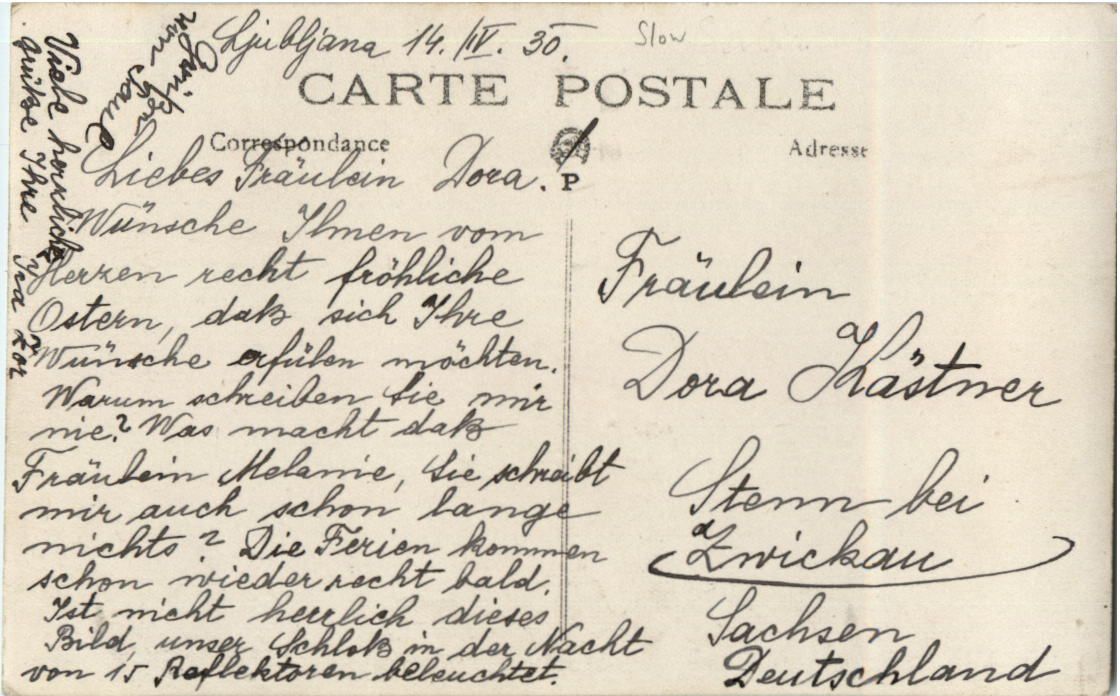 Ljubljana 14./IV. 30.
Slow
CARTE POSTALE
Correspondance
Adresse
P
Liebes Fräulein Dora.
Wünsche Ihnen vom
Herzen recht fröhliche
Ostern, daß sich Ihre
Wünsche erfülen möchten.
Warum schreiben Sie mir
nie? Was macht daß
Fräulein Melanie, Sie schreibt
mir auch schon lange
nichts? Die Ferien kommen
schon wieder recht bald.
Ist nicht herrlich dieses
Bild, unser Schloß in der Nacht
von 15 Reflektoren beleuchtet.
Viele herzliche
Grüße Ihre
von
Fräulein
Dora Kästner
Stenn bei
Zwickau
Sachsen
Deutschland